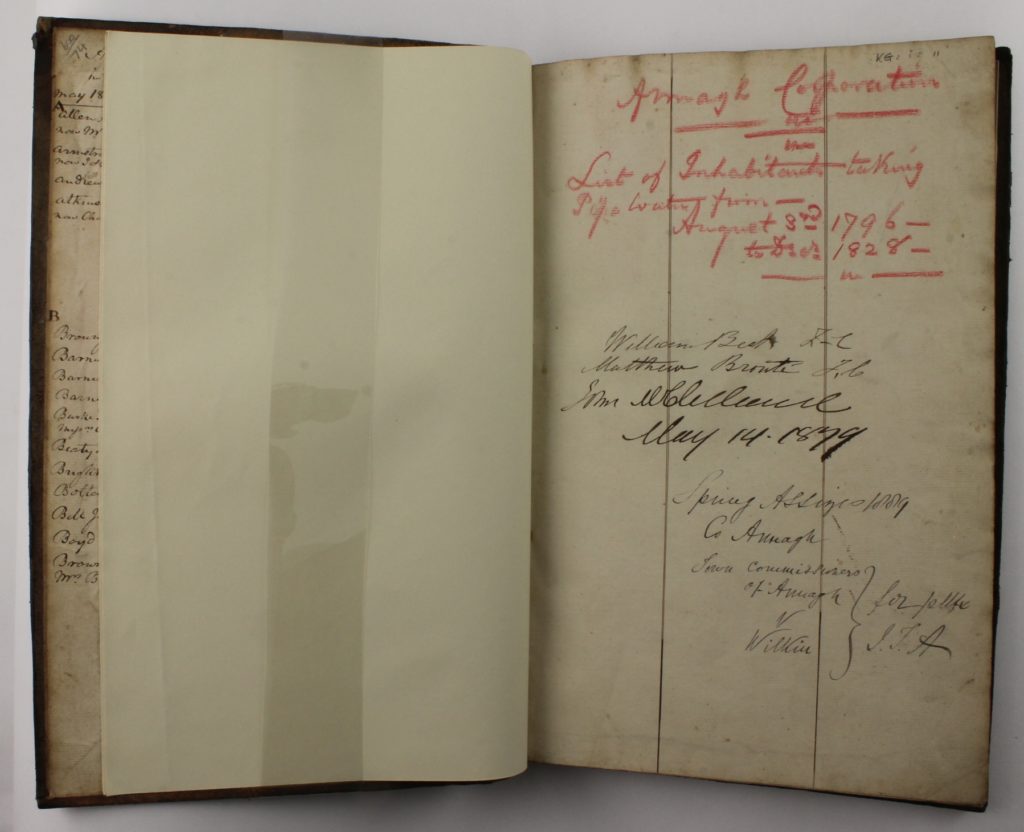 May 18
A
Allen
now M
Armstr
now
Andrew
now Ch
B
Brown
Barn
Barn
Barn
Beaty
Bright
Bolto
Bell J
Boyd
Brown
Mrs B
Armagh Corporation
List of Inhabitants taking
Pipe Water from —
August 3rd 1796 —
to Decr 1828 —
William Beck T-C
Matthew Bronte T.C
John McClelland
May 14. 1879
Spring Assizes 1889
Co Armagh
Town Commissioners
of Armagh
for pltffs
v
Wilkin
J. F. A